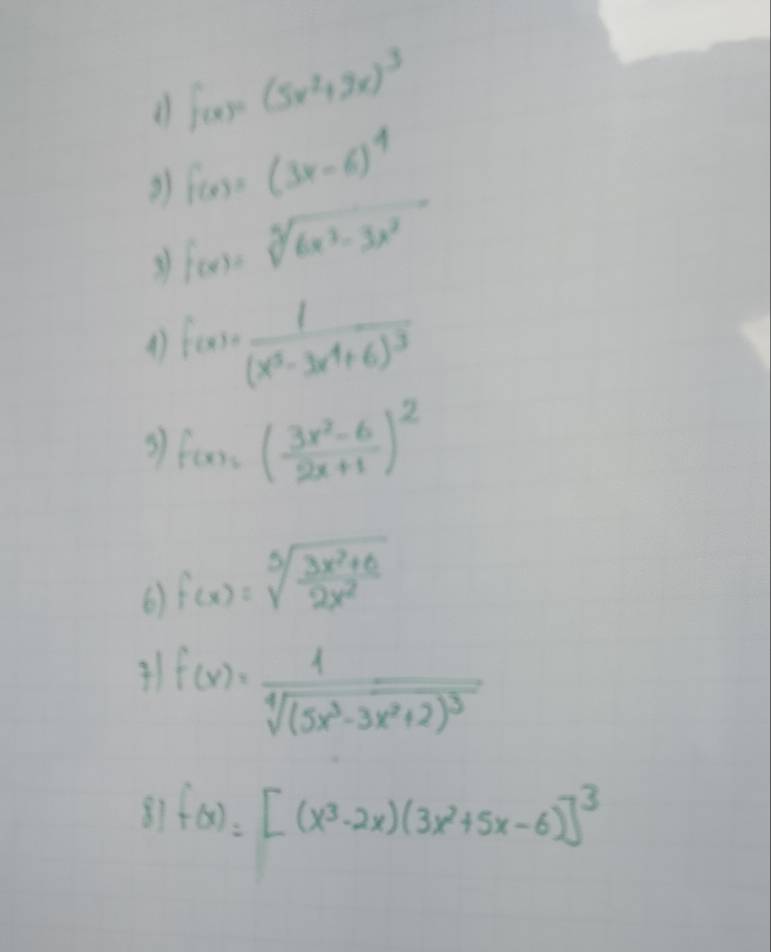 1) f(x)= (5x²+9x)³
2) f(x)= (3x-6)⁴
3) f(x)= ⁵√(6x³-3x²)
4) f(x)= 1/(x⁵-3x⁴+6)³
5) f(x)= ((3x²-6)/(2x+1))²
6) f(x)= ⁵√((3x²+6)/(2x²))
7) f(x)= 1/⁴√((5x³-3x²+2)³)
8) f(x)= [(x³-2x)(3x²+5x-6)]³